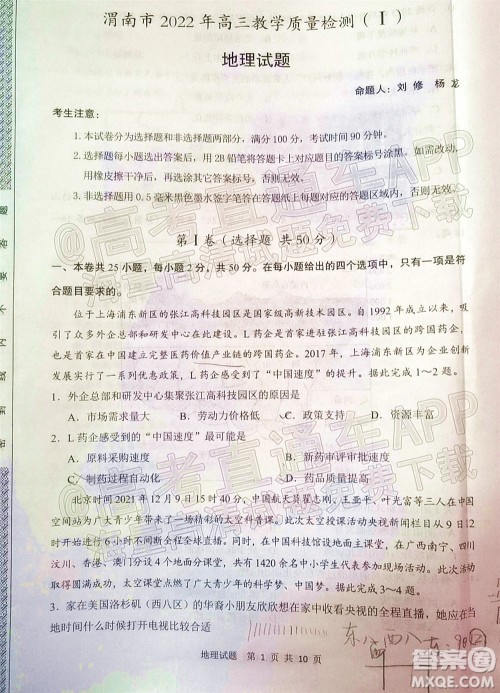 渭南市2022年高三教学质量检测(Ⅰ)
地理试题
命题人：刘 修 杨 龙
考生注意：
1.本试卷分为选择题和非选择题两部分，满分100分，考试时间90分钟。
2.选择题每小题选出答案后，用2B铅笔将答题卡上对应题目的答案标号涂黑。如需改动，
用橡皮擦干净后，再选涂其它答案标号，否则无效。
3.非选择题用0.5毫米黑色墨水签字笔答在答题卡上对应的答题区域内，否则无效。
第Ⅰ卷(选择题 共50分)
一、本卷共25小题，每小题2分，共50分。在每小题给出的四个选项中，只有一项是符
合题目要求的。
位于上海浦东新区的张江高科技园区是国家级高新技术园区。自1992年成立以来，吸
引了众多外企总部和研发中心集聚。L药企是首家进驻张江高科技园区的跨国药企，
也是首家在中国建立完整医药价值产业链的跨国药企。2017年，上海浦东新区为企业创新
发展实行了一系列优惠政策，L药企感受到了“中国速度”。据此完成1～2题。
1.外企总部和研发中心集聚张江高科技园区的原因是
A.市场需求量大 B.劳动力价格低 C.政策支持 D.资源丰富
2.L药企感受到的“中国速度”最可能是
A.原料采购速度 B.新药审评审批速度
C.制药过程自动化 D.药品运输速度
北京时间2021年12月9日15时40分，中国航天员翟志刚、王亚平、叶光富等三人在中国
空间站为广大青少年带来了一堂精彩的太空科普课，本次太空授课活动央视新闻客户端从9日12
时开始进行6小时不间断全程全球直播。同时，在中国科技馆设地面主课堂，在广西南宁、四川
汶川、香港、澳门分设4个地面分课堂，共有1420余名中小学生代表参加现场活动。授课取
得圆满成功，太空课堂点燃了广大青少年的科学梦、中国梦。据此完成3～4题。
3.家在美国洛杉矶（西八区）的华裔小朋友欣欣想在家中收看央视的全程直播，她应在当
地时间什么时候打开电视比较合适
东八 西八
地理试题 第1页共10页
密封线内不要答题
@高考直通车APP
海量高清试题免费下载
@高考直通车APP
海量高清试题免费下载
答案圈
MXQE.COM